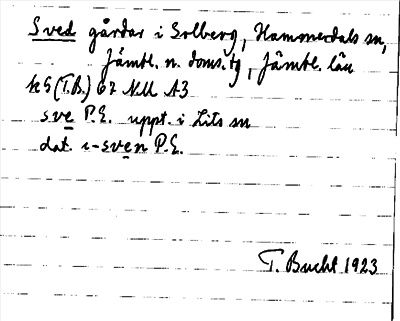 Sved gårdar i Solberg, Hammerdals sn,
Jämtl. n. doms.tg, Jämtl. län
kG (T.B.) 67 NU A3
sve P.E. uppt. i Lits sn
dat. i-sven P.E.
T. Bucht 1923